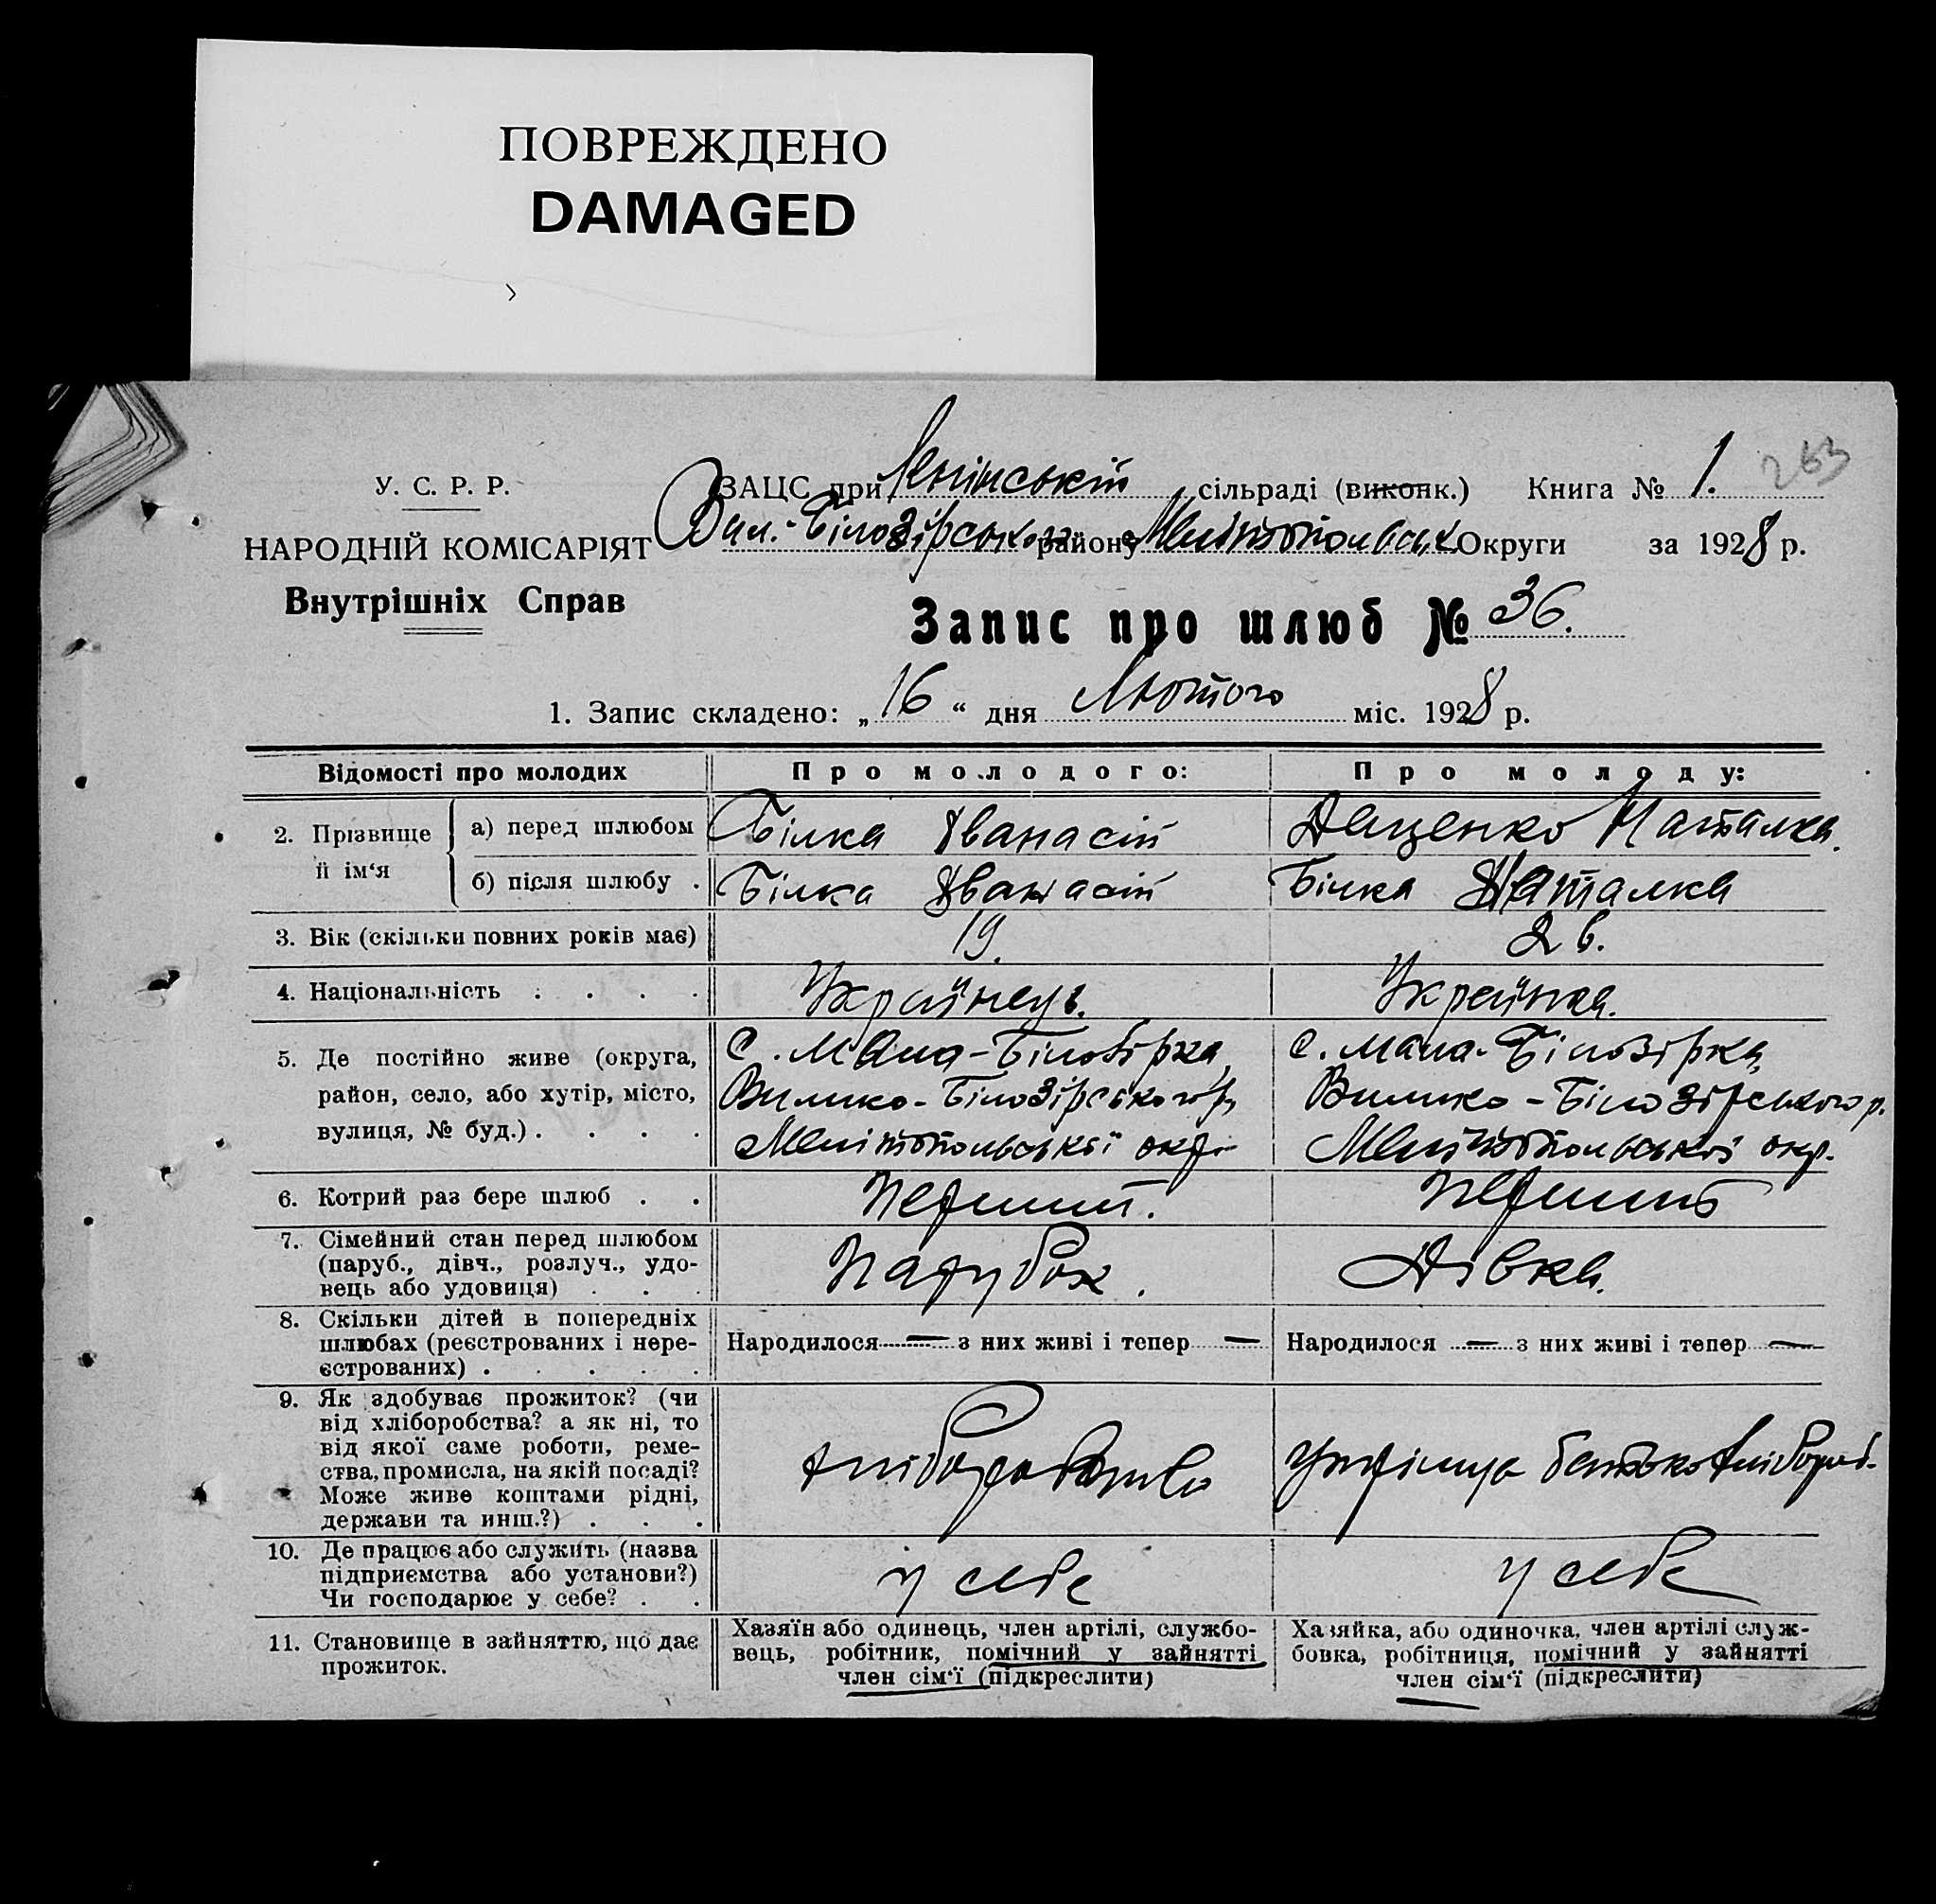 ПОВРЕЖДЕНО
DAMAGED
У. С. Р. Р.
НАРОДНІЙ КОМІСАРІЯТ
Внутрішніх Справ
ЗАЦС при Ленінській сільраді (виконк.) Книга № 1. 263
Вил.-Білозірського району Мелітопольськ Округи за 1928 р.
Запис про шлюб № 36.
1. Запис складено: „16“ дня Лютого міс. 1928 р.
Відомості про молодих Про молодого: Про молоду:
2. Прізвище й ім‘я
а) перед шлюбом Білка Хванасій Даценко Наталка.
б) після шлюбу . Білка Хванасій Білка Наталка
3. Вік (скільки повних років має) 19.
4. Національність . . . . Українець. Українка.
5. Де постійно живе (округа, район, село, або хутір, місто, вулиця, № буд.) . . . .
с. Мала-Білозірка,
Вилико-Білозірського р,
Мелітопольської окр.
с. Мала-Білозірка,
Вилико-Білозірського р.
Мелітопольської окр.
6. Котрий раз бере шлюб . . Перший. Перший
7. Сімейний стан перед шлюбом
(паруб., дівч., розлуч., удо-
вець або удовиця) . . . Парубок. Дівка.
8. Скільки дітей в попередніх
шлюбах (реєстрованих і нере-
єстрованих) . . . . .
Народилося — з них живі і тепер —
Народилося — з них живі і тепер —
9. Як здобуває прожиток? (чи
від хліборобства? а як ні, то
від якої саме роботи, реме-
ства, промисла, на якій посаді?
Може живе коштами рідні,
держави та инш.?) . . .
хліборобство
батько хлібороб.
10. Де працює або служить (назва
підприємства або установи?)
Чи господарює у себе? . .
у себе
у себе
11. Становище в зайняттю, що дає
прожиток.
Хазяїн або одинець, член артілі, службо-
вець, робітник, помічний у зайнятті
член сім‘ї (підкреслити)
Хазяйка, або одиночка, член артілі служ-
бовка, робітниця, помічний у зайнятті
член сім‘ї (підкреслити)